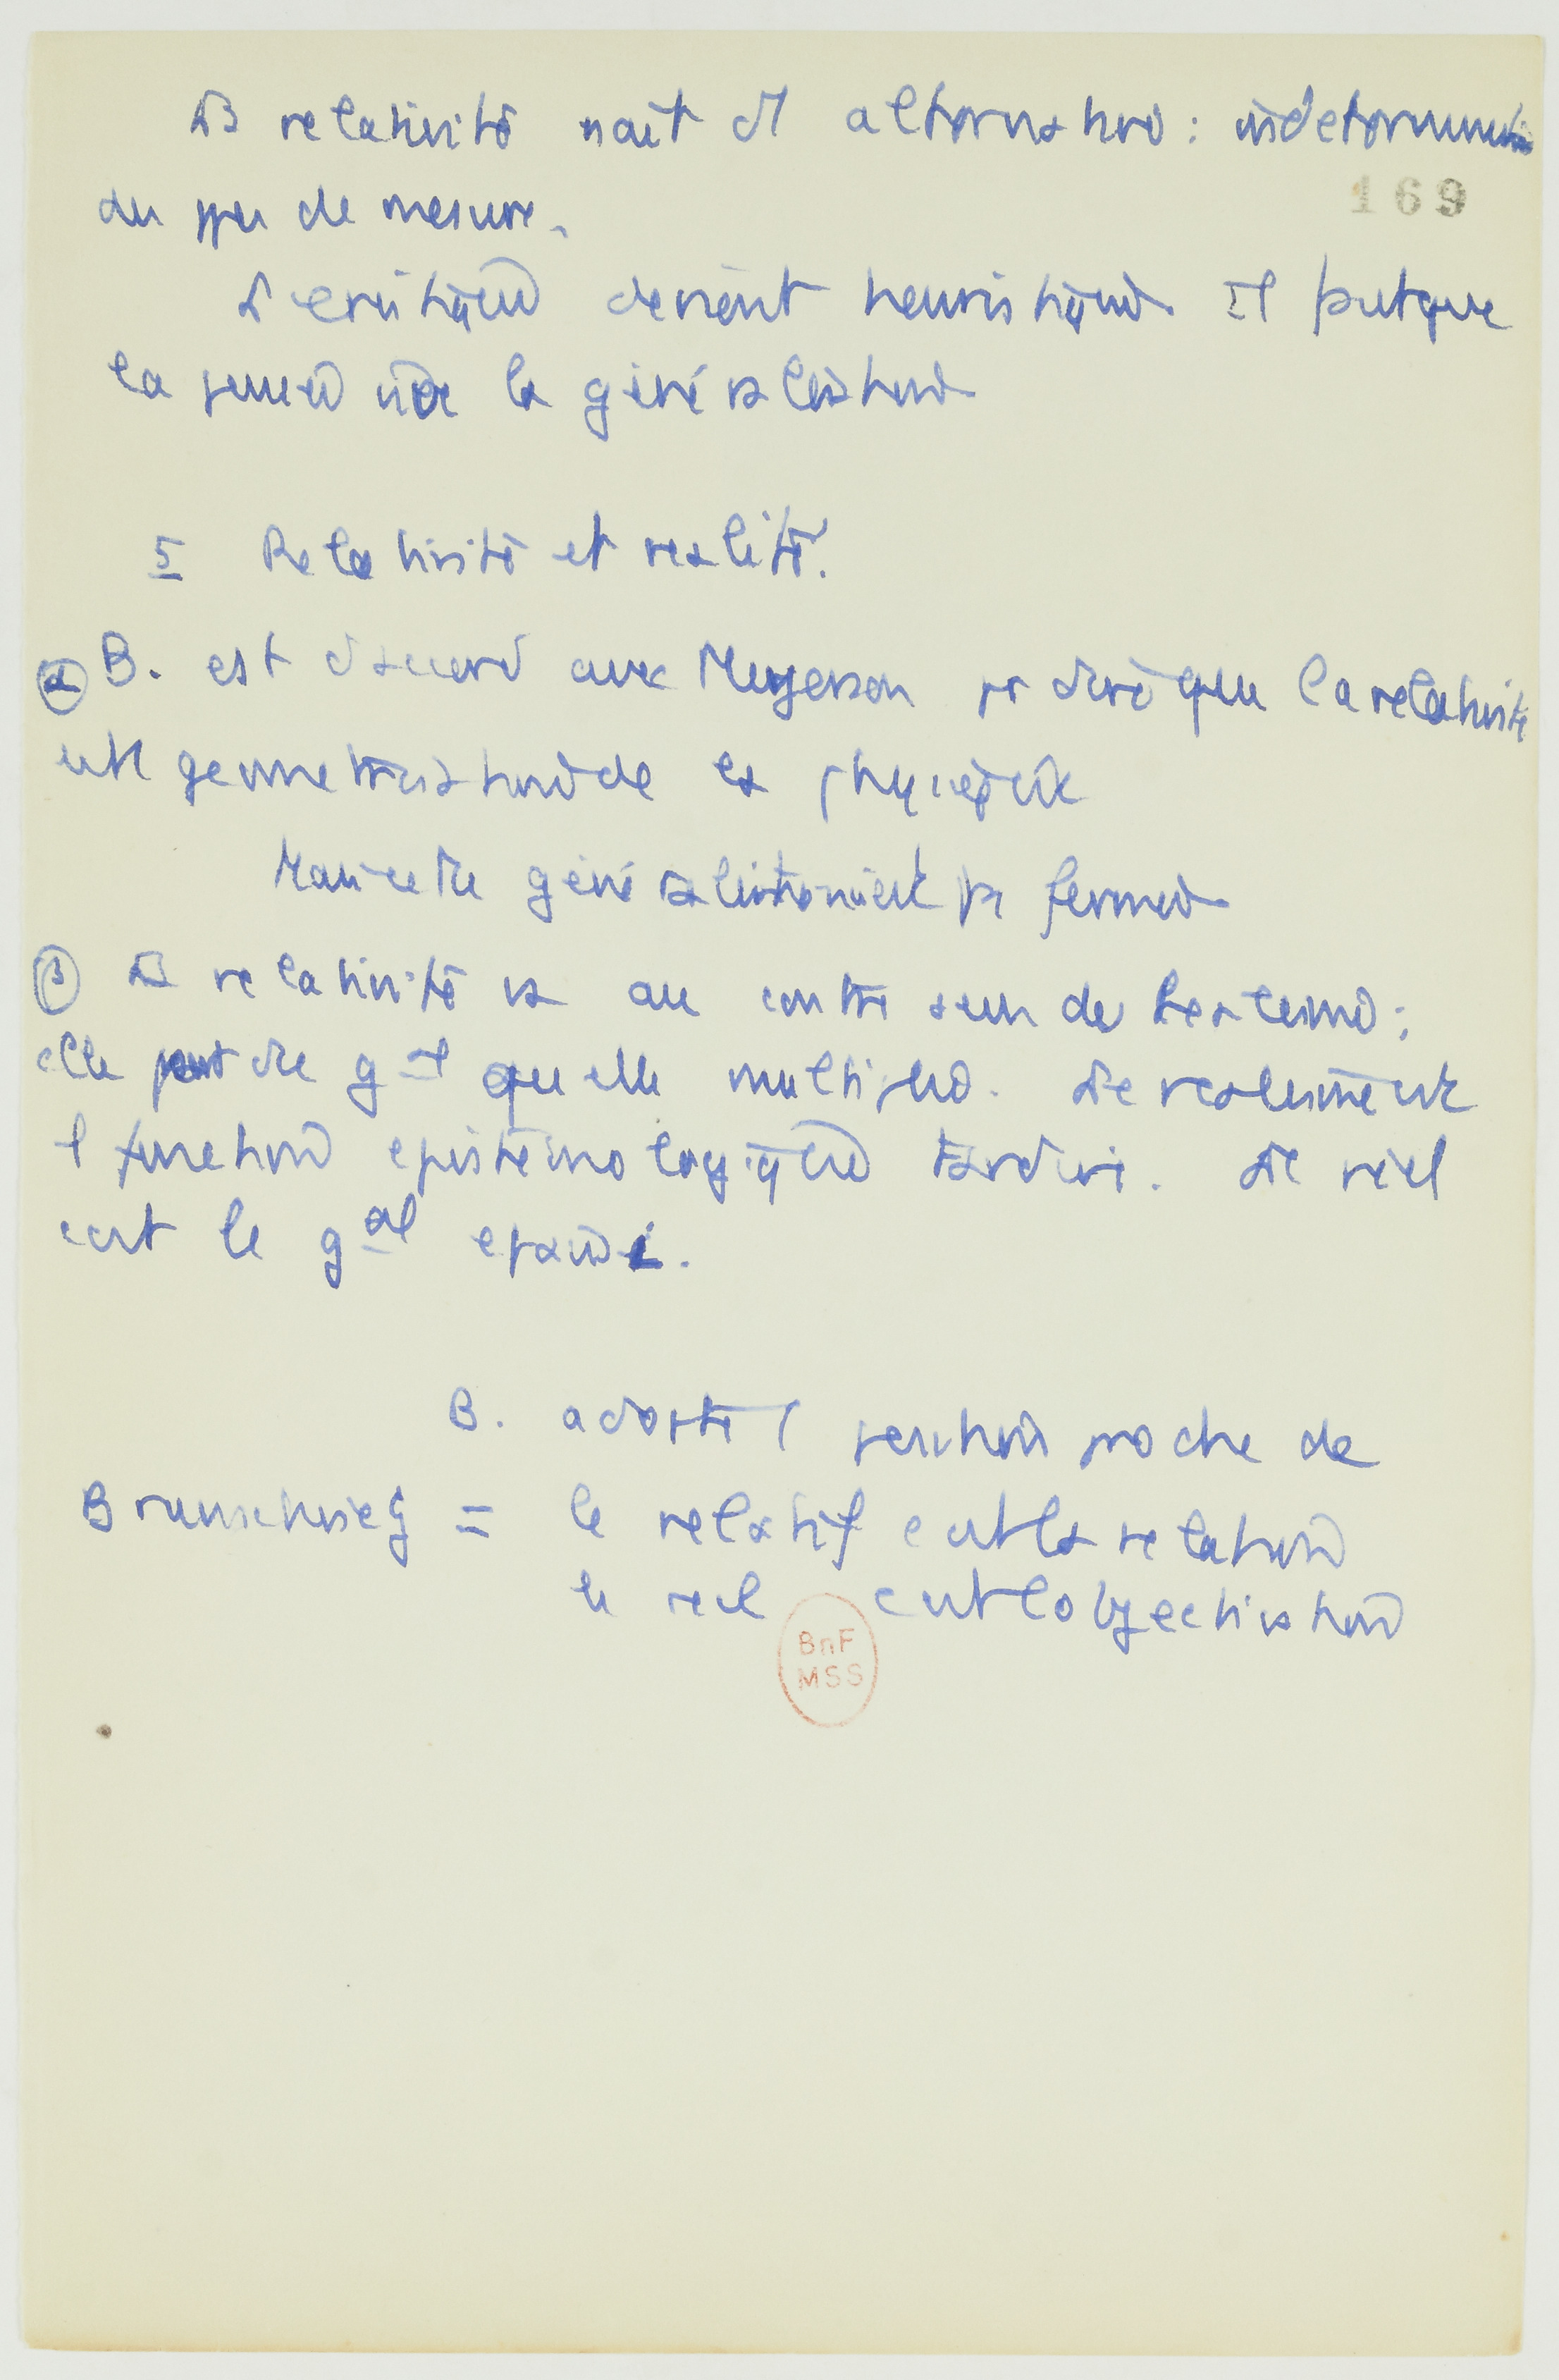 La relativité naît d'1 alternative : indétermination
du pu de mesure.
La critique devient heuristique. Il faut que
la pensée vise la généralisation
5 Relativité et réalité.
α B. est d'accord avec Meyerson pr dire que la relativité
est 1 géométrisation de la physique
Mais cette généralisation n'est pas fermée
β La relativité va au contre sens du réalisme ;
elle part du gal qu'elle multiplie. Le réalisme est
1 fonction épistémologique tardive. Le réel
c'est le gal épaissi.
B. adopte 1 position proche de
Brunschvicg = le relatif c'est la relation
le réel c'est l'objectivation
169
BnF
MSS